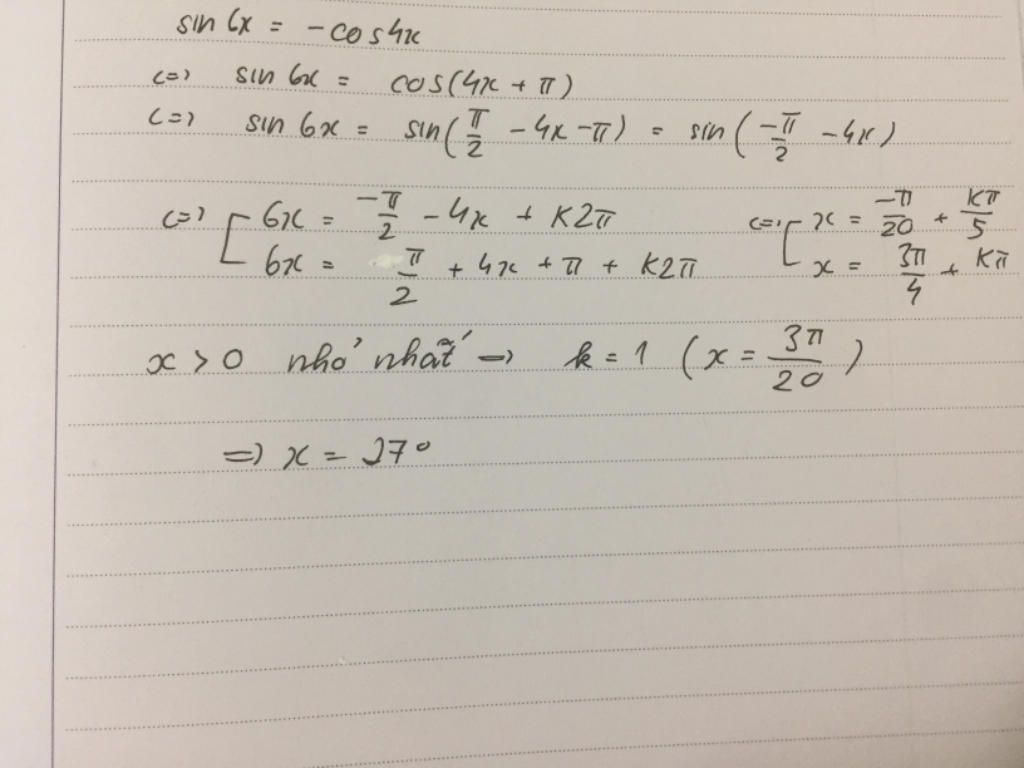 sin 6x = -cos4x
<=> sin 6x = cos(4x + π)
<=> sin 6x = sin(π/2 - 4x - π) = sin(-π/2 - 4x)
<=> [ 6x = -π/2 - 4x + K2π <=> [ x = -π/20 + Kπ/5
6x = π/2 + 4x + π + K2π x = 3π/4 + Kπ
x > 0 nhỏ nhất => k = 1 (x = 3π/20)
=> x = 27°